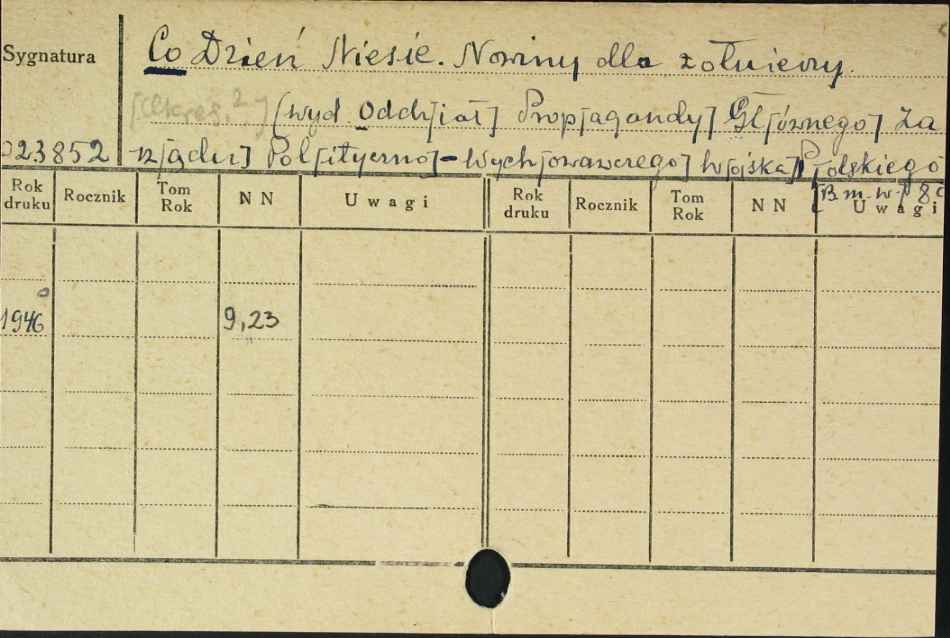 Sygnatura
Co Dzień Niesie. Nowiny dla żołnierzy.
[Okres. ?] (wyd. Oddz[iał] Prop[agandy] Gł[ównego] Za
023852 rz[ądu] Pol[ityczno]-Wych[owawczego] W[ojska] P[olskiego
[B. m. w.] 8°
Rok druku Rocznik Tom Rok NN Uwagi Rok druku Rocznik Tom Rok NN Uwagi
1946 9,23